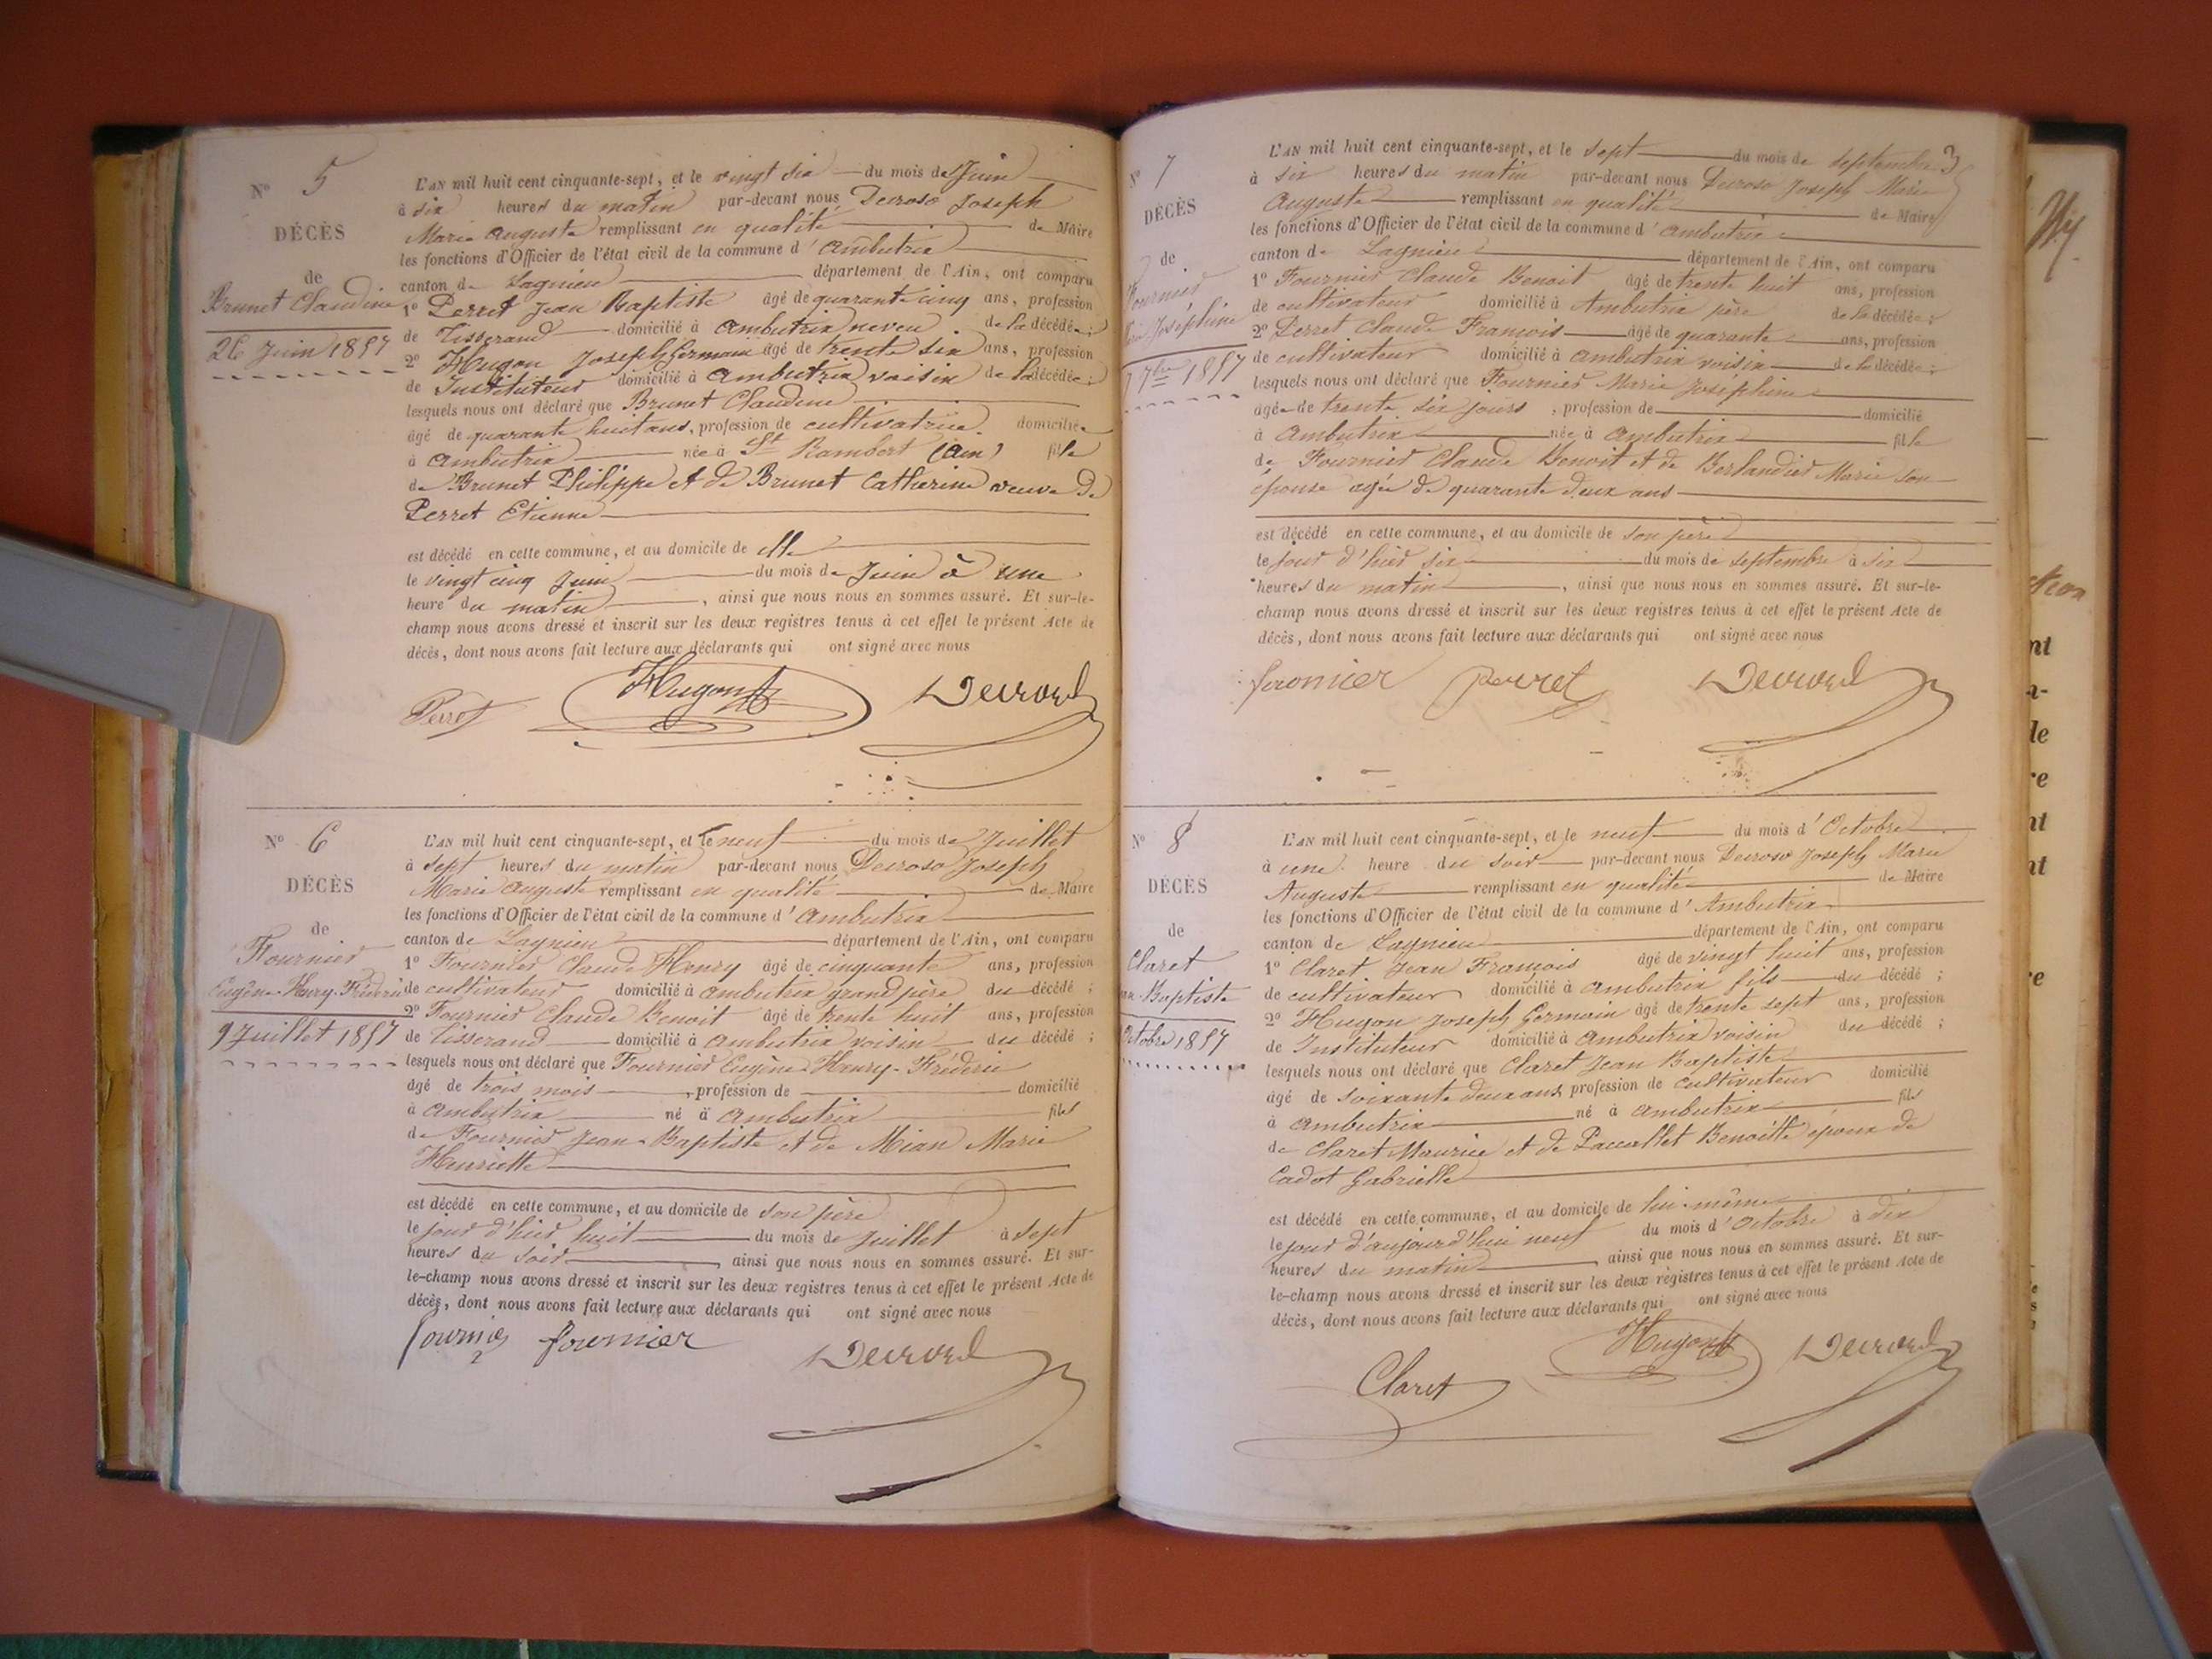 N° 5
DÉCÈS
de
Brunet Claudine
26 Juin 1857
L'AN mil huit cent cinquante-sept, et le vingt six du mois de Juin
à six heures du matin par-devant nous Decroso Joseph
Marie Auguste remplissant en qualité de Maire
les fonctions d'Officier de l'état civil de la commune d'Ambutrix
canton de Lagnieu département de l'Ain, ont comparu
1° Perret Jean Baptiste âgé de quarante cinq ans, profession
de Tisserand domicilié à Ambutrix neveu de la décédée;
2° Hugon Joseph Germain âgé de trente six ans, profession
de Instituteur domicilié à Ambutrix voisin de la décédée;
lesquels nous ont déclaré que Brunet Claudine
âgé de quarante huit ans, profession de cultivatrice domiciliée
à Ambutrix née à St Rambert (Ain) fille
de Brunet Philippe et de Brunet Catherine veuve de
Perret Etienne
est décédé en cette commune, et au domicile de elle
le vingt cinq Juin du mois de Juin à une
heure du matin, ainsi que nous nous en sommes assuré. Et sur-le-
champ nous avons dressé et inscrit sur les deux registres tenus à cet effet le présent Acte de
décès, dont nous avons fait lecture aux déclarants qui ont signé avec nous
Perret Hugon Decroso
N° 6
DÉCÈS
de
Fournier
Eugène-Henry-Fréderic
9 Juillet 1857
L'AN mil huit cent cinquante-sept, et le neuf du mois de Juillet
à sept heures du matin par-devant nous Decroso Joseph
Marie Auguste remplissant en qualité de Maire
les fonctions d'Officier de l'état civil de la commune d'Ambutrix
canton de Lagnieu département de l'Ain, ont comparu
1° Fournier Claude Henry âgé de cinquante ans, profession
de cultivateur domicilié à Ambutrix grand père du décédé;
2° Fournier Claude Benoit âgé de trente huit ans, profession
de Tisserand domicilié à Ambutrix voisin du décédé;
lesquels nous ont déclaré que Fournier Eugène-Henry-Fréderic
âgé de trois mois, profession de domicilié
à Ambutrix né à Ambutrix fils
de Fournier Jean-Baptiste et de Mian Marie
Henriette
est décédé en cette commune, et au domicile de son père
le jour d'hier huit du mois de Juillet à sept
heures du soir, ainsi que nous nous en sommes assuré. Et sur-
le-champ nous avons dressé et inscrit sur les deux registres tenus à cet effet le présent Acte de
décès, dont nous avons fait lecture aux déclarants qui ont signé avec nous
fournier fournier Decroso
3
N° 7
DÉCÈS
de
Fournier
Joséphine
7 7bre 1857
L'AN mil huit cent cinquante-sept, et le sept du mois de septembre
à six heures du matin par-devant nous Decroso Joseph Marie
Auguste remplissant en qualité de Maire
les fonctions d'Officier de l'état civil de la commune d'Ambutrix
canton de Lagnieu département de l'Ain, ont comparu
1° Fournier Claude Benoit âgé de trente huit ans, profession
de cultivateur domicilié à Ambutrix père de la décédée;
2° Perret Claude François âgé de quarante ans, profession
de cultivateur domicilié à Ambutrix voisin de la décédée;
lesquels nous ont déclaré que Fournier Marie Joséphine
âgée de trente six jours, profession de domicilié
à Ambutrix née à Ambutrix fille
de Fournier Claude Benoit et de Berlandier Marie son
épouse agée de quarante deux ans
est décédé en cette commune, et au domicile de son père
le jour d'hier six du mois de septembre à six
heures du matin, ainsi que nous nous en sommes assuré. Et sur-le-
champ nous avons dressé et inscrit sur les deux registres tenus à cet effet le présent Acte de
décès, dont nous avons fait lecture aux déclarants qui ont signé avec nous
fournier perret Decroso
N° 8
DÉCÈS
de
Claret
Baptiste
Octobre 1857
L'AN mil huit cent cinquante-sept, et le neuf du mois d'Octobre
à une heure du soir par-devant nous Decroso Joseph Marie
Auguste remplissant en qualité de Maire
les fonctions d'Officier de l'état civil de la commune d'Ambutrix
canton de Lagnieu département de l'Ain, ont comparu
1° Claret Jean François âgé de vingt huit ans, profession
de cultivateur domicilié à Ambutrix fils du décédé;
2° Hugon Joseph Germain âgé de trente sept ans, profession
de Instituteur domicilié à Ambutrix voisin du décédé;
lesquels nous ont déclaré que Claret Jean Baptiste
âgé de soixante deux ans profession de cultivateur domicilié
à Ambutrix né à Ambutrix fils
de Claret Maurice et de Paccallet Benoitte époux de
Cadot Gabrielle
est décédé en cette commune, et au domicile de lui-même
le jour d'aujourd'hui neuf du mois d'Octobre à dix
heures du matin, ainsi que nous nous en sommes assuré. Et sur-
le-champ nous avons dressé et inscrit sur les deux registres tenus à cet effet le présent Acte de
décès, dont nous avons fait lecture aux déclarants qui ont signé avec nous
Claret Hugon Decroso